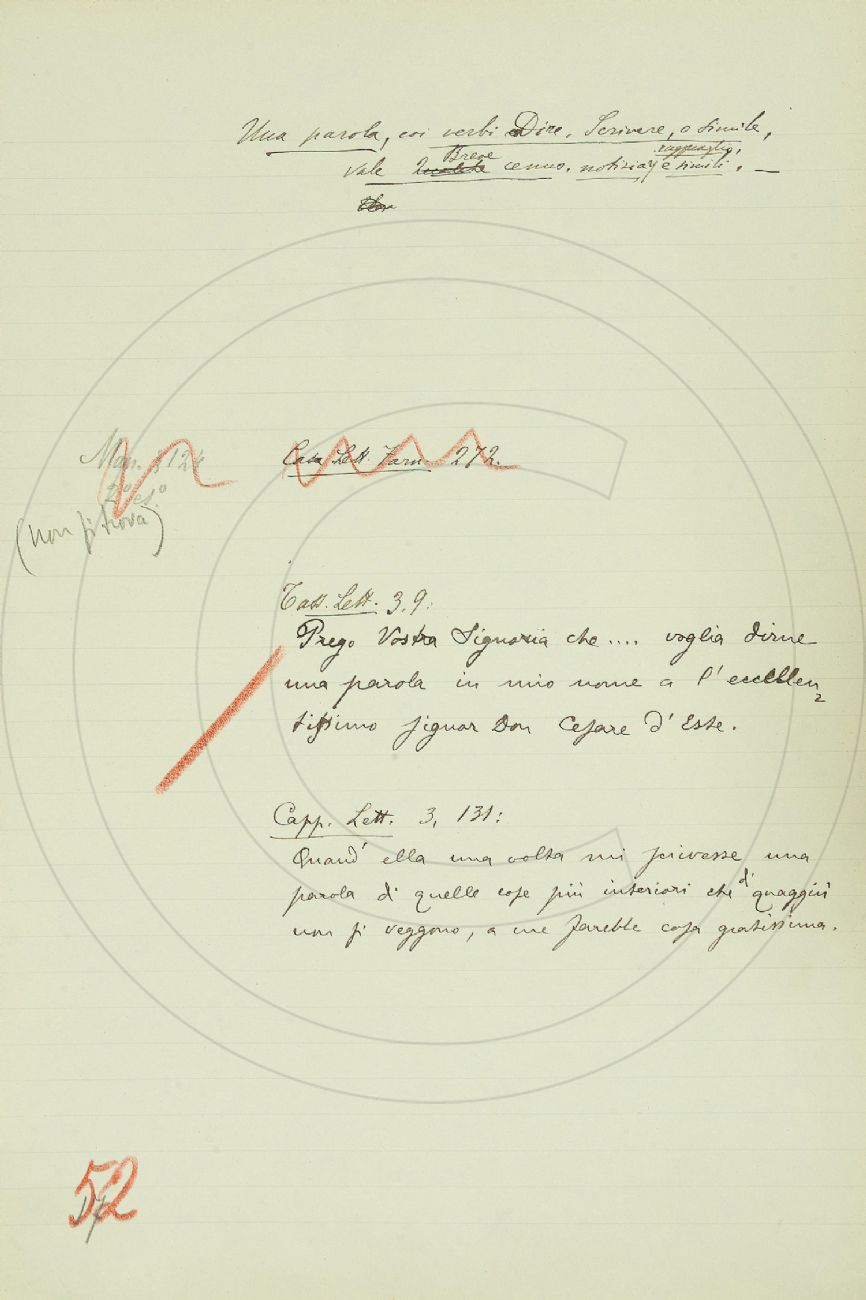 Una parola, coi verbi Dire, Scrivere, o simile,
vale Breve cenno, notizia, ragguaglio, e simili. —
Man. 124
2° es.°
(non si trova)
Casa Lett. Farn. 272.
Tass. Lett. 3, 9:
Prego Vostra Signoria che .... voglia dirne
una parola in mio nome a l'eccellen=
tissimo signor Don Cesare d'Este.
Capp. Lett. 3, 131:
Quand' ella una volta mi scrivesse una
parola di quelle cose più interiori che di quaggiù
non si veggono, a me farebbe cosa gratissima.
52
17